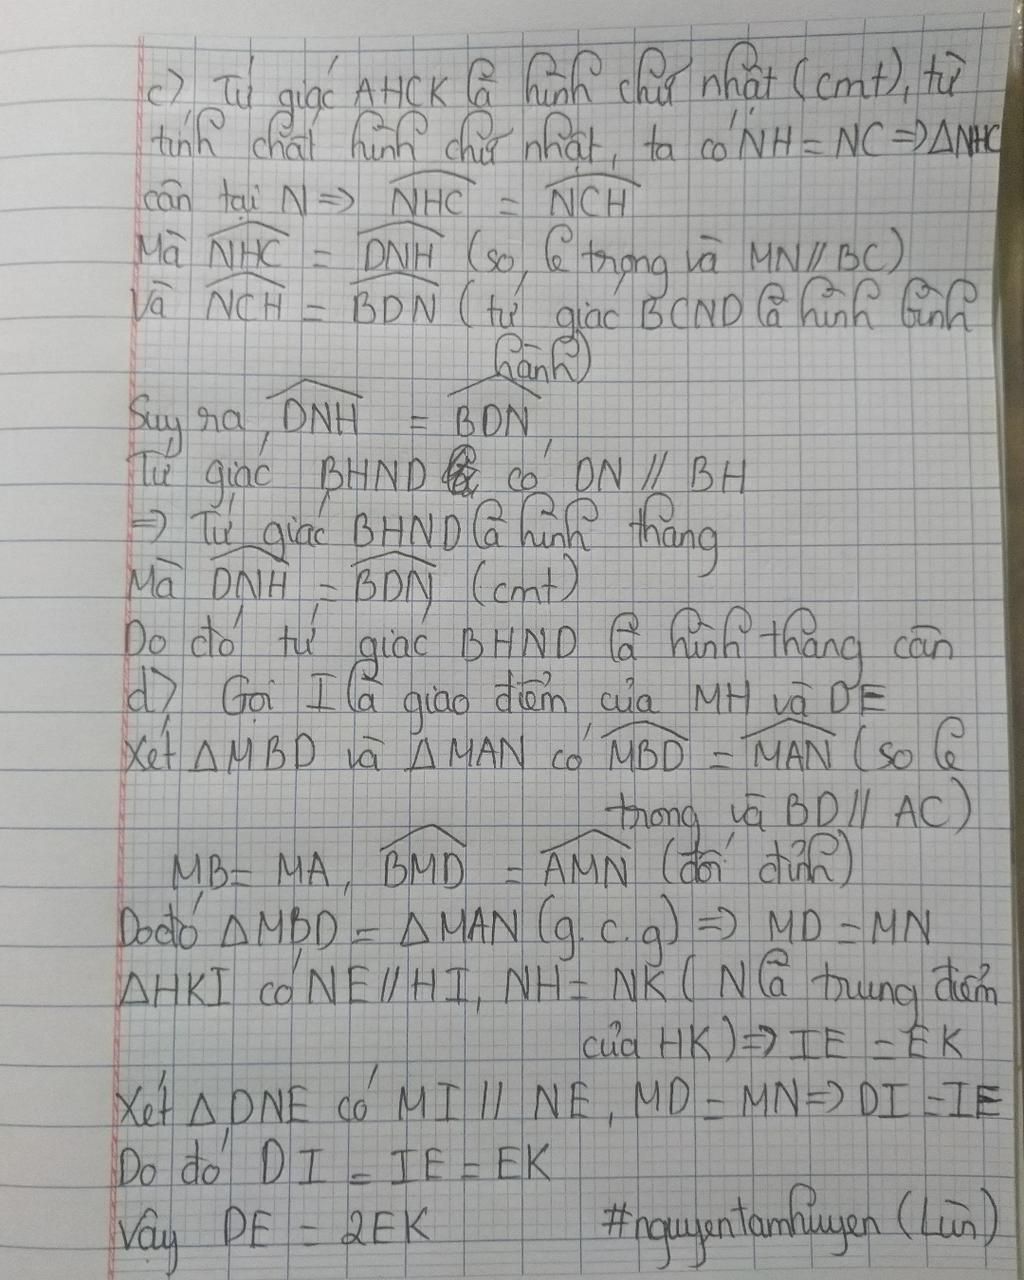 c) Tứ giác AHCK là hình chữ nhật (cmt), từ
tính chất hình chữ nhật, ta có NH = NC => ΔNHC
cân tại N => \widehat{NHC} = \widehat{NCH}
Mà \widehat{NHC} = \widehat{DNH} (so le trong và MN // BC)
Và \widehat{NCH} = \widehat{BDN} (tứ giác BCND là hình bình
hành)
Suy ra, \widehat{DNH} = \widehat{BDN}
Tứ giác BHND có DN // BH
=> Tứ giác BHND là hình thang
Mà \widehat{DNH} = \widehat{BDN} (cmt)
Do đó tứ giác BHND là hình thang cân
d) Gọi I là giao điểm của MH và DE
Xét ΔMBD và ΔMAN có \widehat{MBD} = \widehat{MAN} (so le
trong và BD // AC)
MB = MA, \widehat{BMD} = \widehat{AMN} (đối đỉnh)
Do đó ΔMBD = ΔMAN (g.c.g) => MD = MN
ΔHKI có NE // HI, NH = NK (N là trung điểm
của HK) => IE = EK
Xét ΔDNE có MI // NE, MD = MN => DI = IE
Do đó DI = IE = EK
Vậy DE = 2EK #nguyentamhuyen (Lùn)